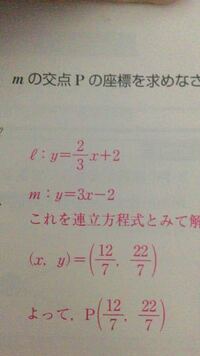 mの交点Pの座標を求めなさ
ℓ：y=2/3x+2
m：y=3x−2
これを連立方程式とみて解
(x, y)=(12/7, 22/7)
よって，P(12/7, 22/7)